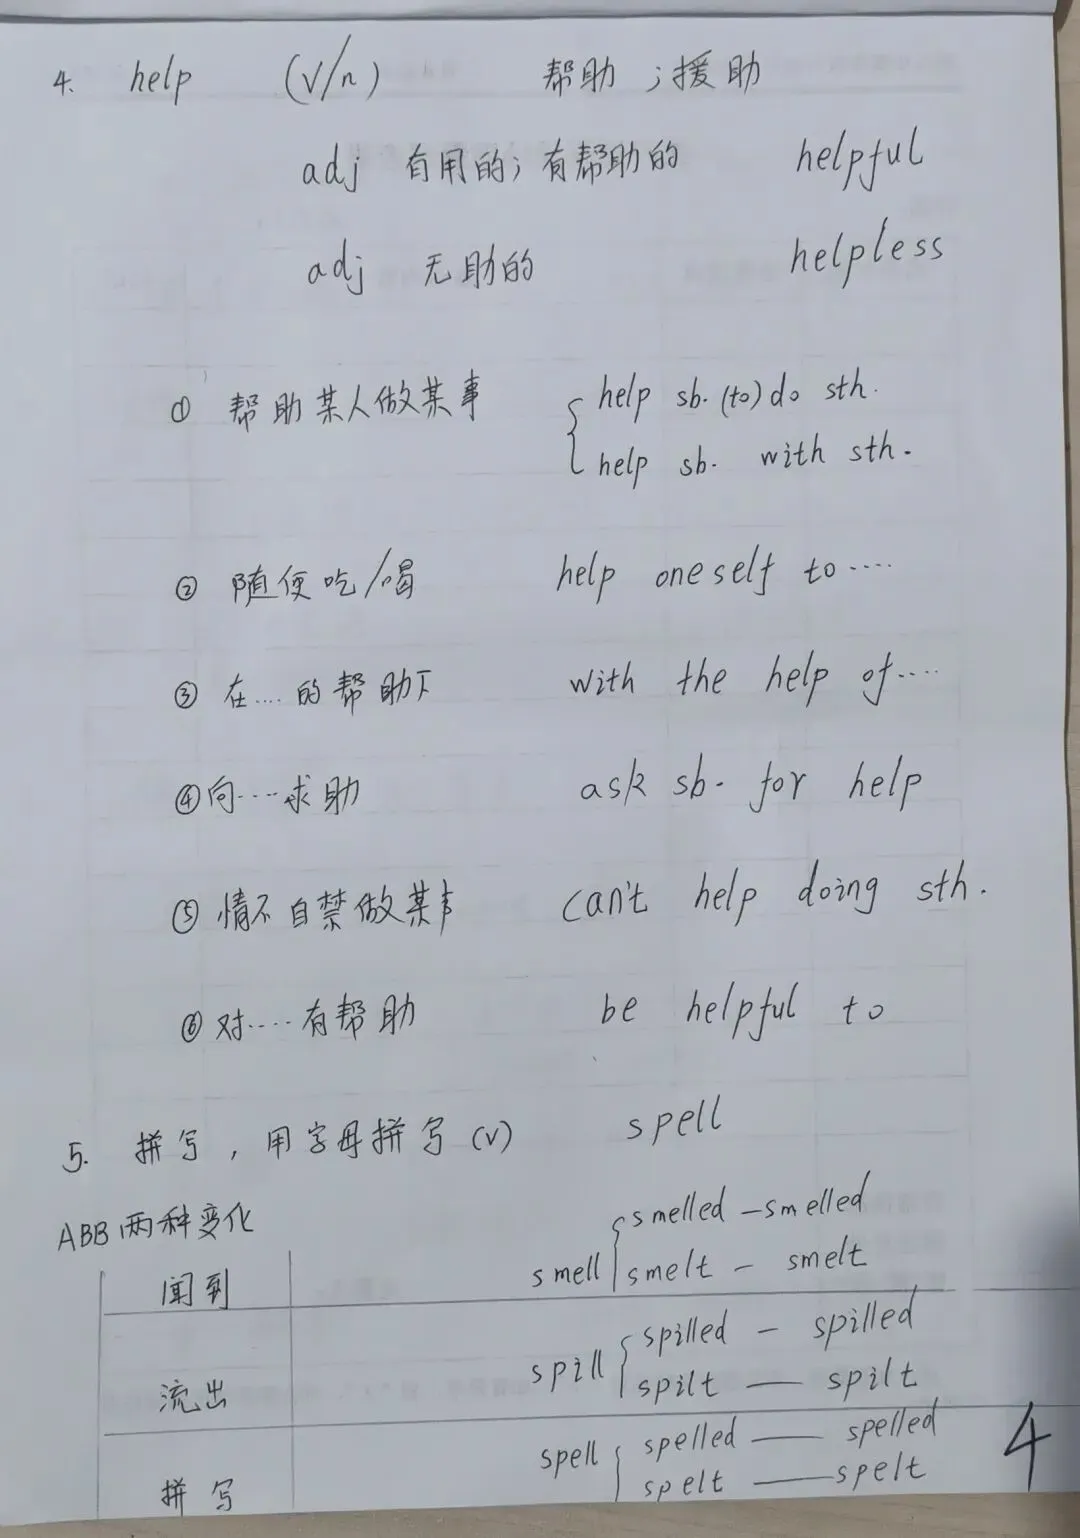 4. help (v/n) 帮助；援助
adj 有用的；有帮助的 helpful
adj 无助的 helpless
① 帮助某人做某事 { help sb. (to) do sth.
help sb. with sth.
② 随便吃/喝 help oneself to ....
③ 在....的帮助下 with the help of ....
④ 向....求助 ask sb. for help
⑤ 情不自禁做某事 can't help doing sth.
⑥ 对....有帮助 be helpful to
5. 拼写，用字母拼写 (v) spell
ABB两种变化
闻到 smell { smelled — smelled
smelt — smelt
流出 spill { spilled — spilled
spilt — spilt
拼写 spell { spelled — spelled
spelt — spelt
4